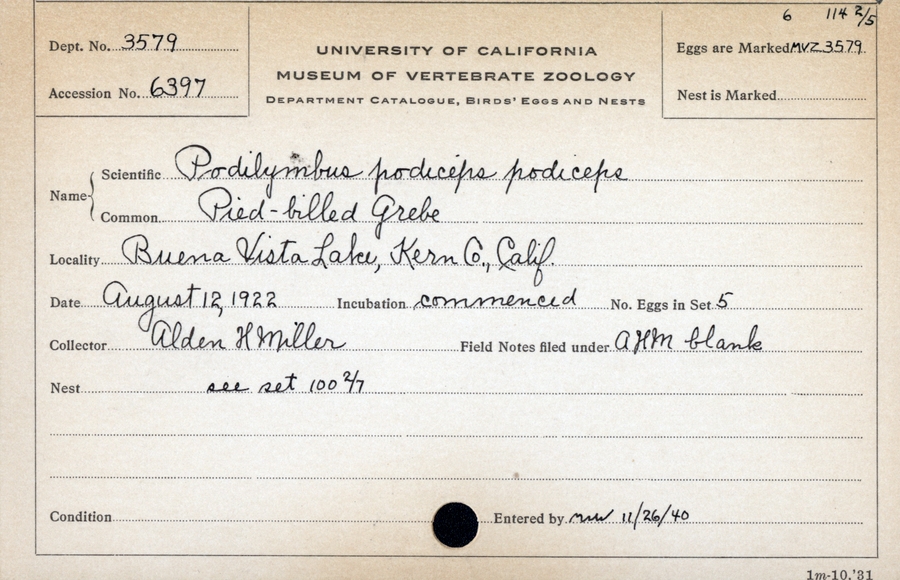 6 114 2/5
Dept. No. 3579
UNIVERSITY OF CALIFORNIA
Eggs are Marked MVZ 3579
MUSEUM OF VERTEBRATE ZOOLOGY
Accession No. 6397
DEPARTMENT CATALOGUE, BIRDS' EGGS AND NESTS
Nest is Marked
Name { Scientific Podilymbus podiceps podiceps
Common Pied-billed Grebe
Locality Buena Vista Lake, Kern Co., Calif.
Date August 12, 1922 Incubation commenced No. Eggs in Set 5
Collector Alden H Miller Field Notes filed under AHM blank
Nest see set 100 2/7
Condition Entered by 11/26/40
1m-10,'31